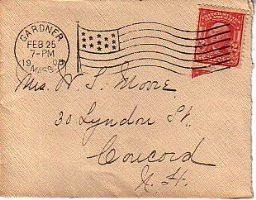 GARDNER
FEB 25
7-PM
MASS.
Mrs. W. S. Moore
30 Lyndon St.
Concord
N. H.